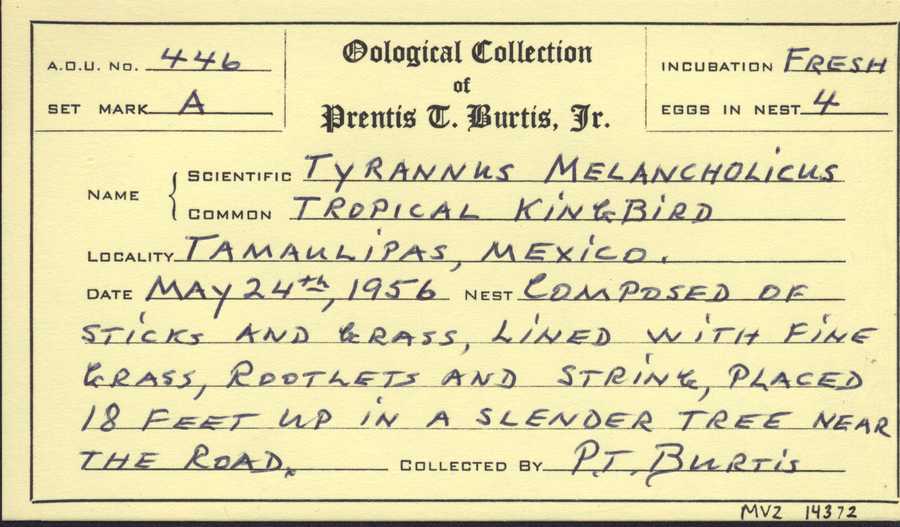 A.O.U. No. 446
Oological Collection
INCUBATION FRESH
of
SET MARK A
Prentis T. Burtis, Jr.
EGGS IN NEST 4
NAME
SCIENTIFIC TYRANNUS MELANCHOLICUS
COMMON TROPICAL KINGBIRD
LOCALITY TAMAULIPAS, MEXICO.
DATE MAY 24th, 1956 NEST COMPOSED OF
STICKS AND GRASS, LINED WITH FINE
GRASS, ROOTLETS AND STRING, PLACED
18 FEET UP IN A SLENDER TREE NEAR
THE ROAD. COLLECTED BY P.T. BURTIS
MVZ 14372